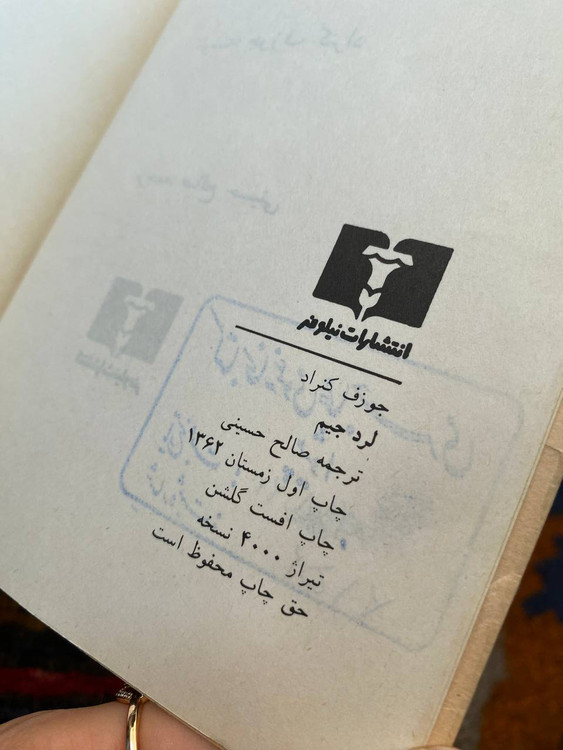 انتشارات نیلوفر
جوزف کنراد
لرد جیم
ترجمه صالح حسینی
چاپ اول زمستان ۱۳۶۲
چاپ افست گلشن
تیراژ ۴۰۰۰ نسخه
حق چاپ محفوظ است